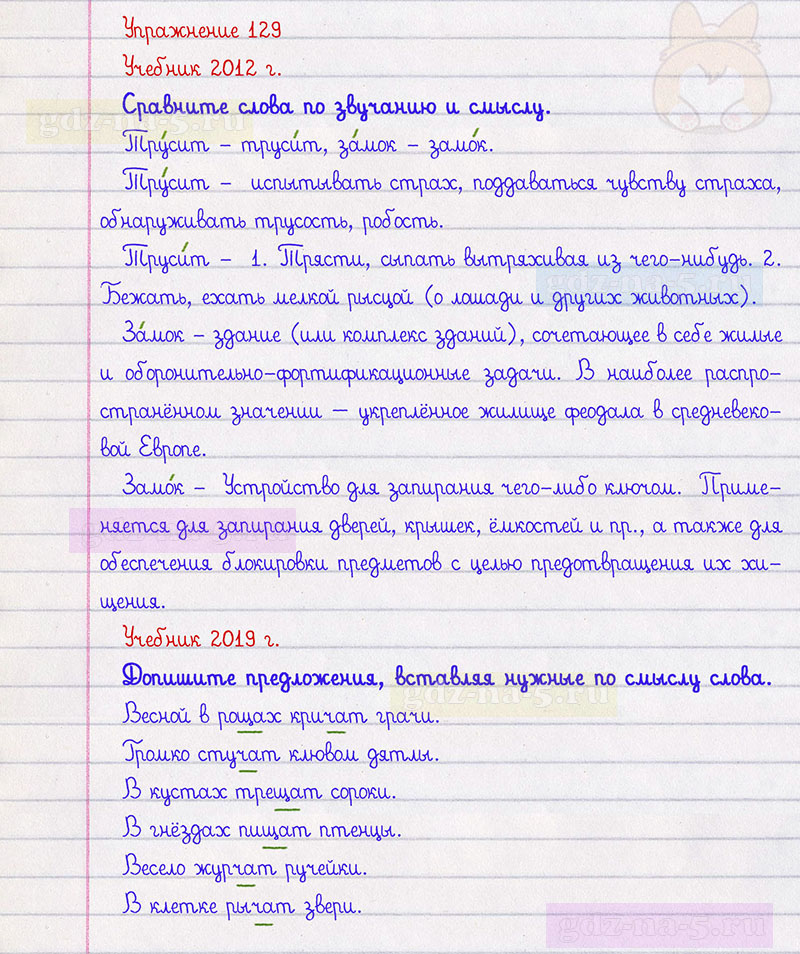 Упражнение 129
Учебник 2012 г.
gdz-na-5.ru
Сравните слова по звучанию и смыслу.
Тру́сит – труси́т, за́мок – замо́к.
Тру́сит – испытывать страх, поддаваться чувству страха,
обнаруживать трусость, робость.
Труси́т – 1. Трясти, сыпать вытряхивая из чего-нибудь. 2.
gdz-na-5.ru
Бежать, ехать мелкой рысцой (о лошади и других животных).
За́мок – здание (или комплекс зданий), сочетающее в себе жилые
и оборонительно-фортификационные задачи. В наиболее распро-
странённом значении — укреплённое жилище феодала в средневеко-
вой Европе.
Замо́к – Устройство для запирания чего-либо ключом. Приме-
няется для запирания дверей, крышек, ёмкостей и пр., а также для
gdz-na-5.ru
обеспечения блокировки предметов с целью предотвращения их хи-
щения.
Учебник 2019 г.
Допишите предложения, вставляя нужные по смыслу слова.
gdz-na-5.ru
Весной в рощах кричат грачи.
Громко стучат клювом дятлы.
В кустах трещат сороки.
В гнёздах пищат птенцы.
Весело журчат ручейки.
В клетке рычат звери.
gdz-na-5.ru